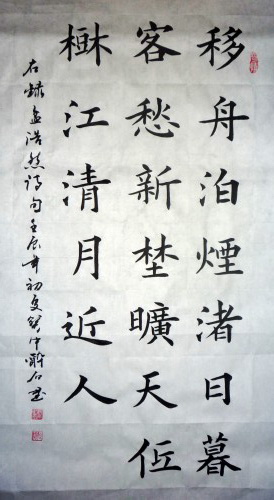 移舟泊煙渚日暮
客愁新埜曠天低
樹江清月近人
右錄孟浩然詩句壬辰年初夏